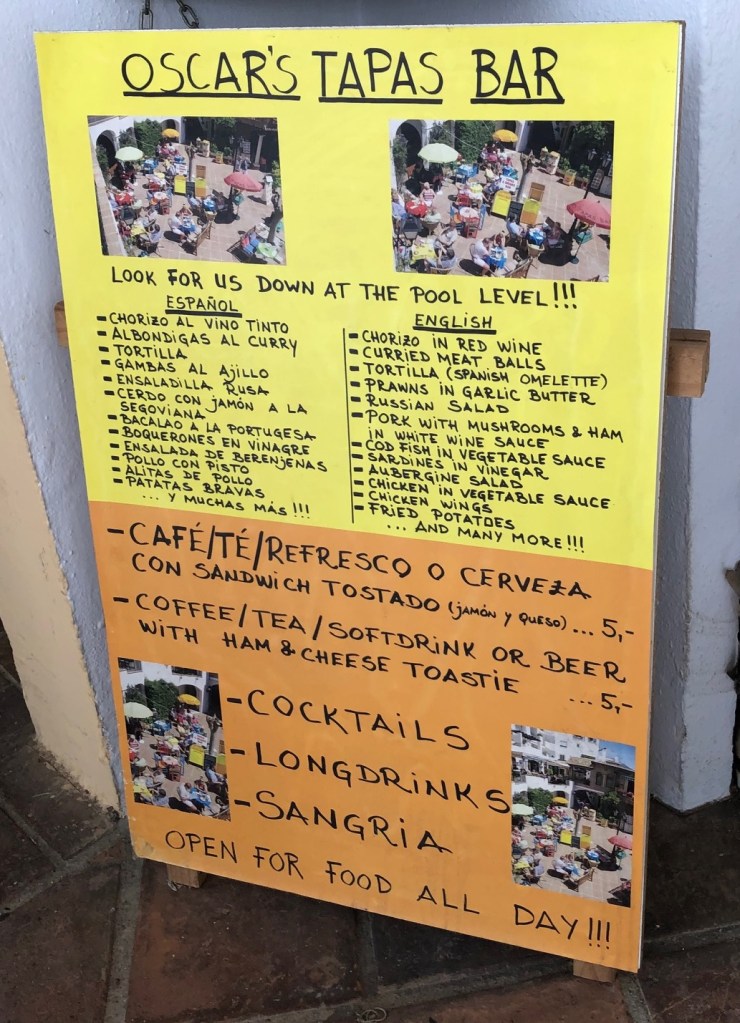 OSCAR'S TAPAS BAR
LOOK FOR US DOWN AT THE POOL LEVEL!!!
ESPAÑOL
- CHORIZO AL VINO TINTO
- ALBONDIGAS AL CURRY
- TORTILLA
- GAMBAS AL AJILLO
- ENSALADILLA RUSA
- CERDO CON JAMÓN A LA
SEGOVIANA
- BACALAO A LA PORTUGESA
- BOQUERONES EN VINAGRE
- ENSALADA DE BERENJENAS
- POLLO CON PISTO
- ALITAS DE POLLO
- PATATAS BRAVAS
... Y MUCHAS MÁS !!!
ENGLISH
- CHORIZO IN RED WINE
- CURRIED MEAT BALLS
- TORTILLA (SPANISH OMELETTE)
- PRAWNS IN GARLIC BUTTER
- RUSSIAN SALAD
- PORK WITH MUSHROOMS & HAM
IN WHITE WINE SAUCE
- COD FISH IN VEGETABLE SAUCE
- SARDINES IN VINEGAR
- AUBERGINE SALAD
- CHICKEN IN VEGETABLE SAUCE
- CHICKEN WINGS
- FRIED POTATOES
... AND MANY MORE!!!
- CAFÉ/TÉ/REFRESCO O CERVEZA
CON SANDWICH TOSTADO (JAMÓN Y QUESO) ... 5,-
- COFFEE/TEA/SOFTDRINK OR BEER
WITH HAM & CHEESE TOASTIE ... 5,-
- COCKTAILS
- LONGDRINKS
- SANGRIA
OPEN FOR FOOD ALL DAY!!!